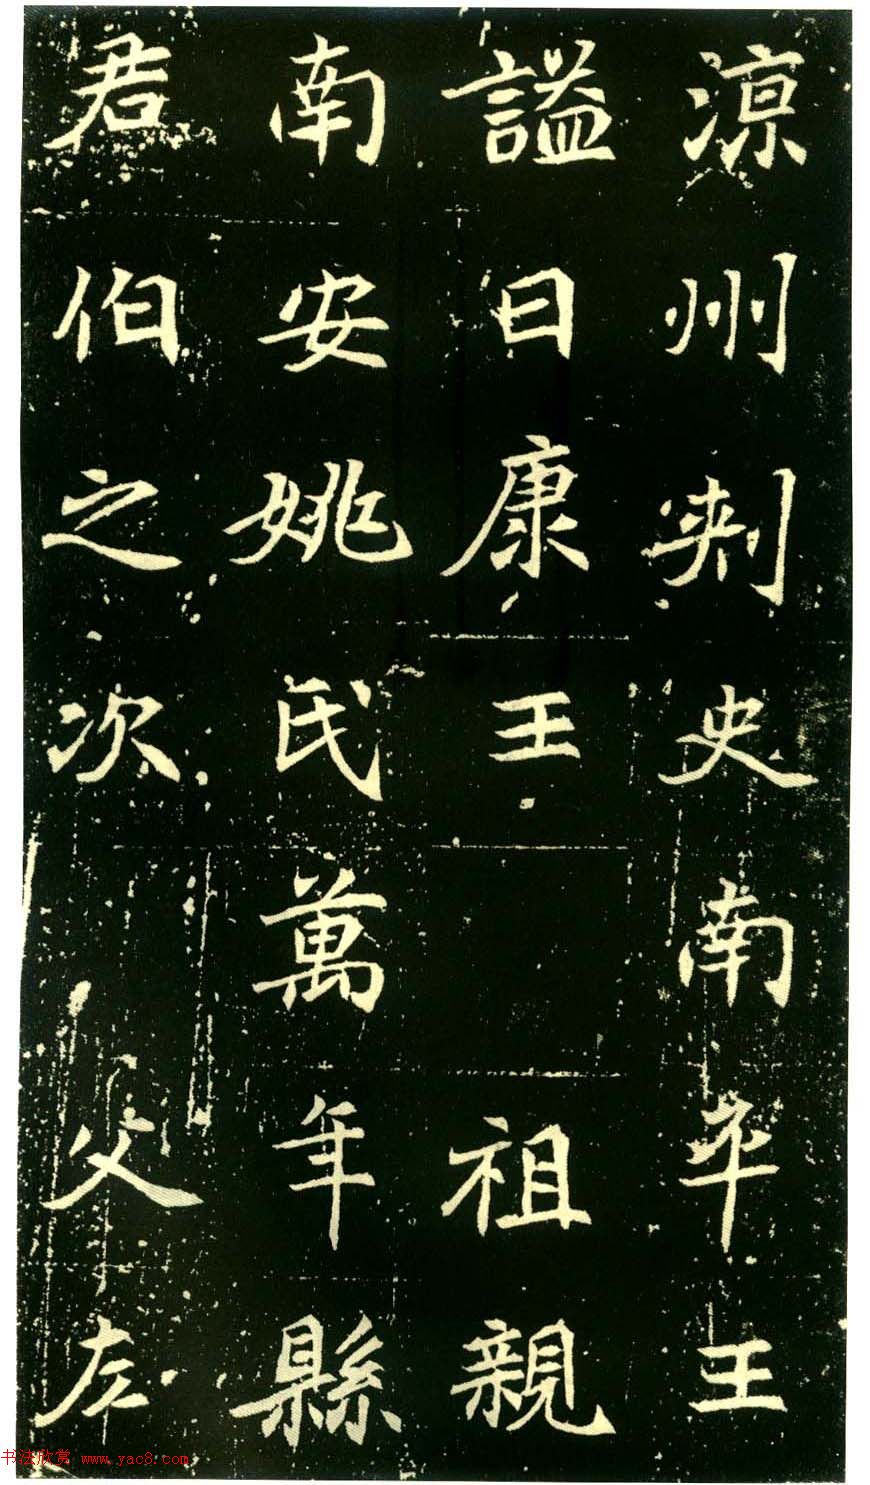 涼州刺史南平王
謚曰康王祖親
南安姚氏萬年縣
君伯之次父左
书法欣赏 www.yac8.com